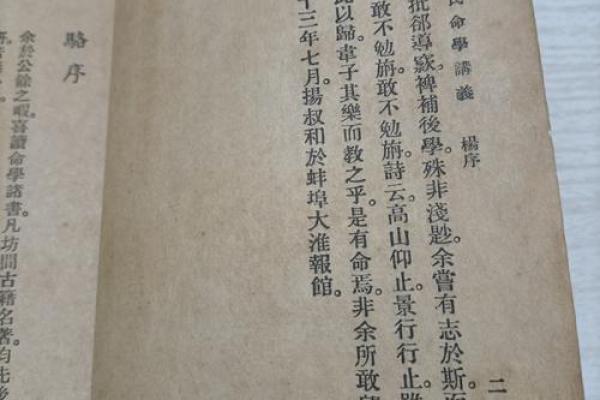 氏命學講義　楊序　二
批郤導窾。裨補後學。殊非淺尠。余嘗有志於斯
敢不勉旃。敢不勉旃。詩云。高山仰止。景行行止。
以歸韋子其樂而教之乎。是有命焉。非余所敢
十三年七月。揚叔和於蚌埠大淮報館。
駱序
余於公餘之暇。喜讀命學諸書。凡坊間古籍名著。均先後